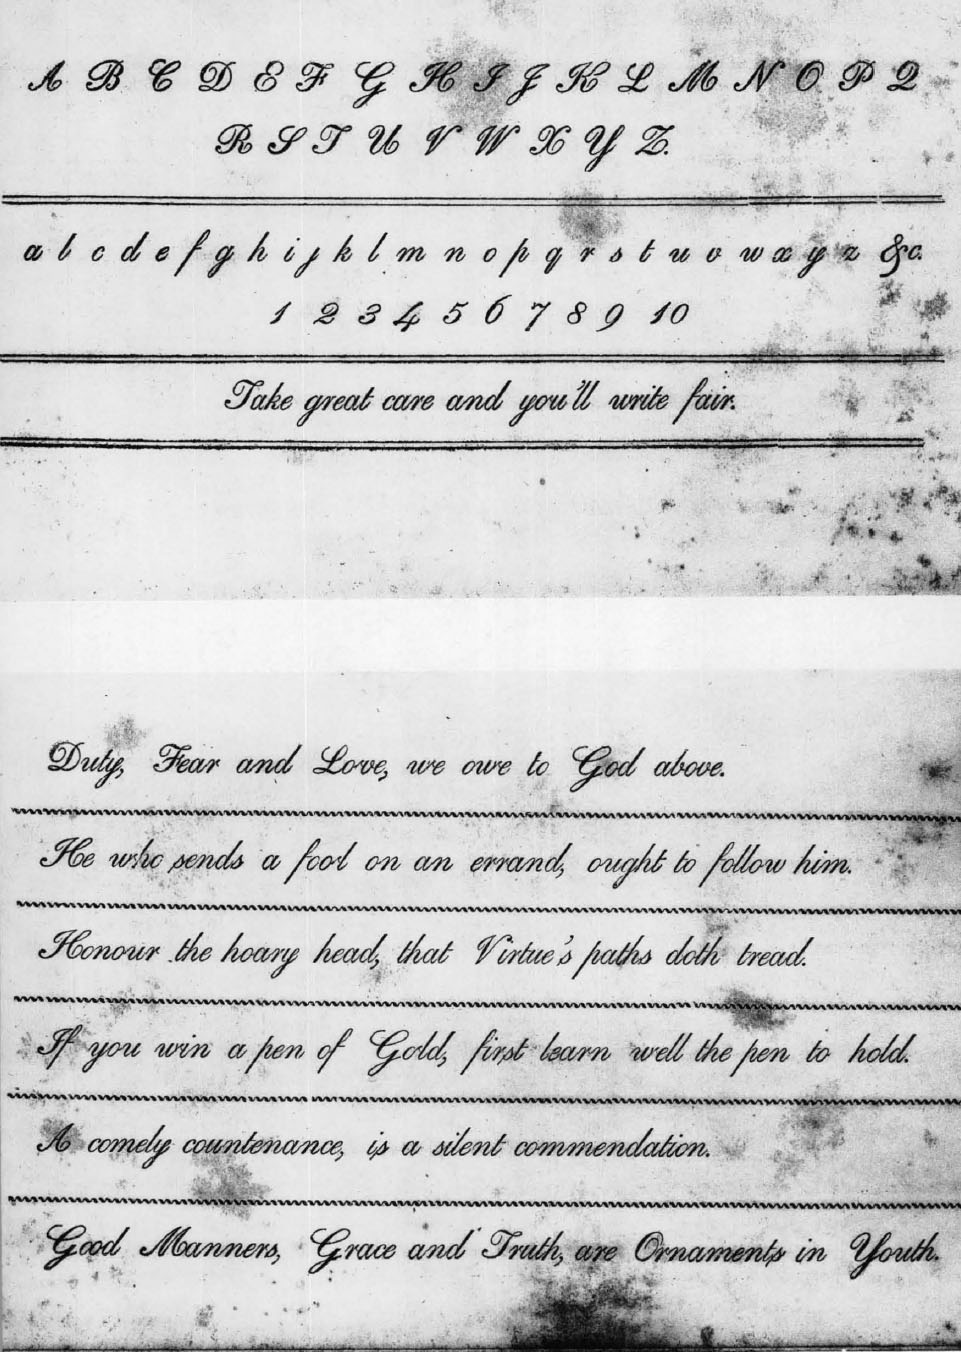 A B C D E F G H I J K L M N O P Q
R S T U V W X Y Z.
a b c d e f g h i j k l m n o p q r s t u v w x y z &c.
1 2 3 4 5 6 7 8 9 10
Take great care and you'll write fair.
Duty, Fear and Love, we owe to God above.
He who sends a fool on an errand, ought to follow him.
Honour the hoary head, that Virtue's paths doth tread.
If you win a pen of Gold, first learn well the pen to hold.
A comely countenance, is a silent commendation.
Good Manners, Grace and Truth, are Ornaments in Youth.